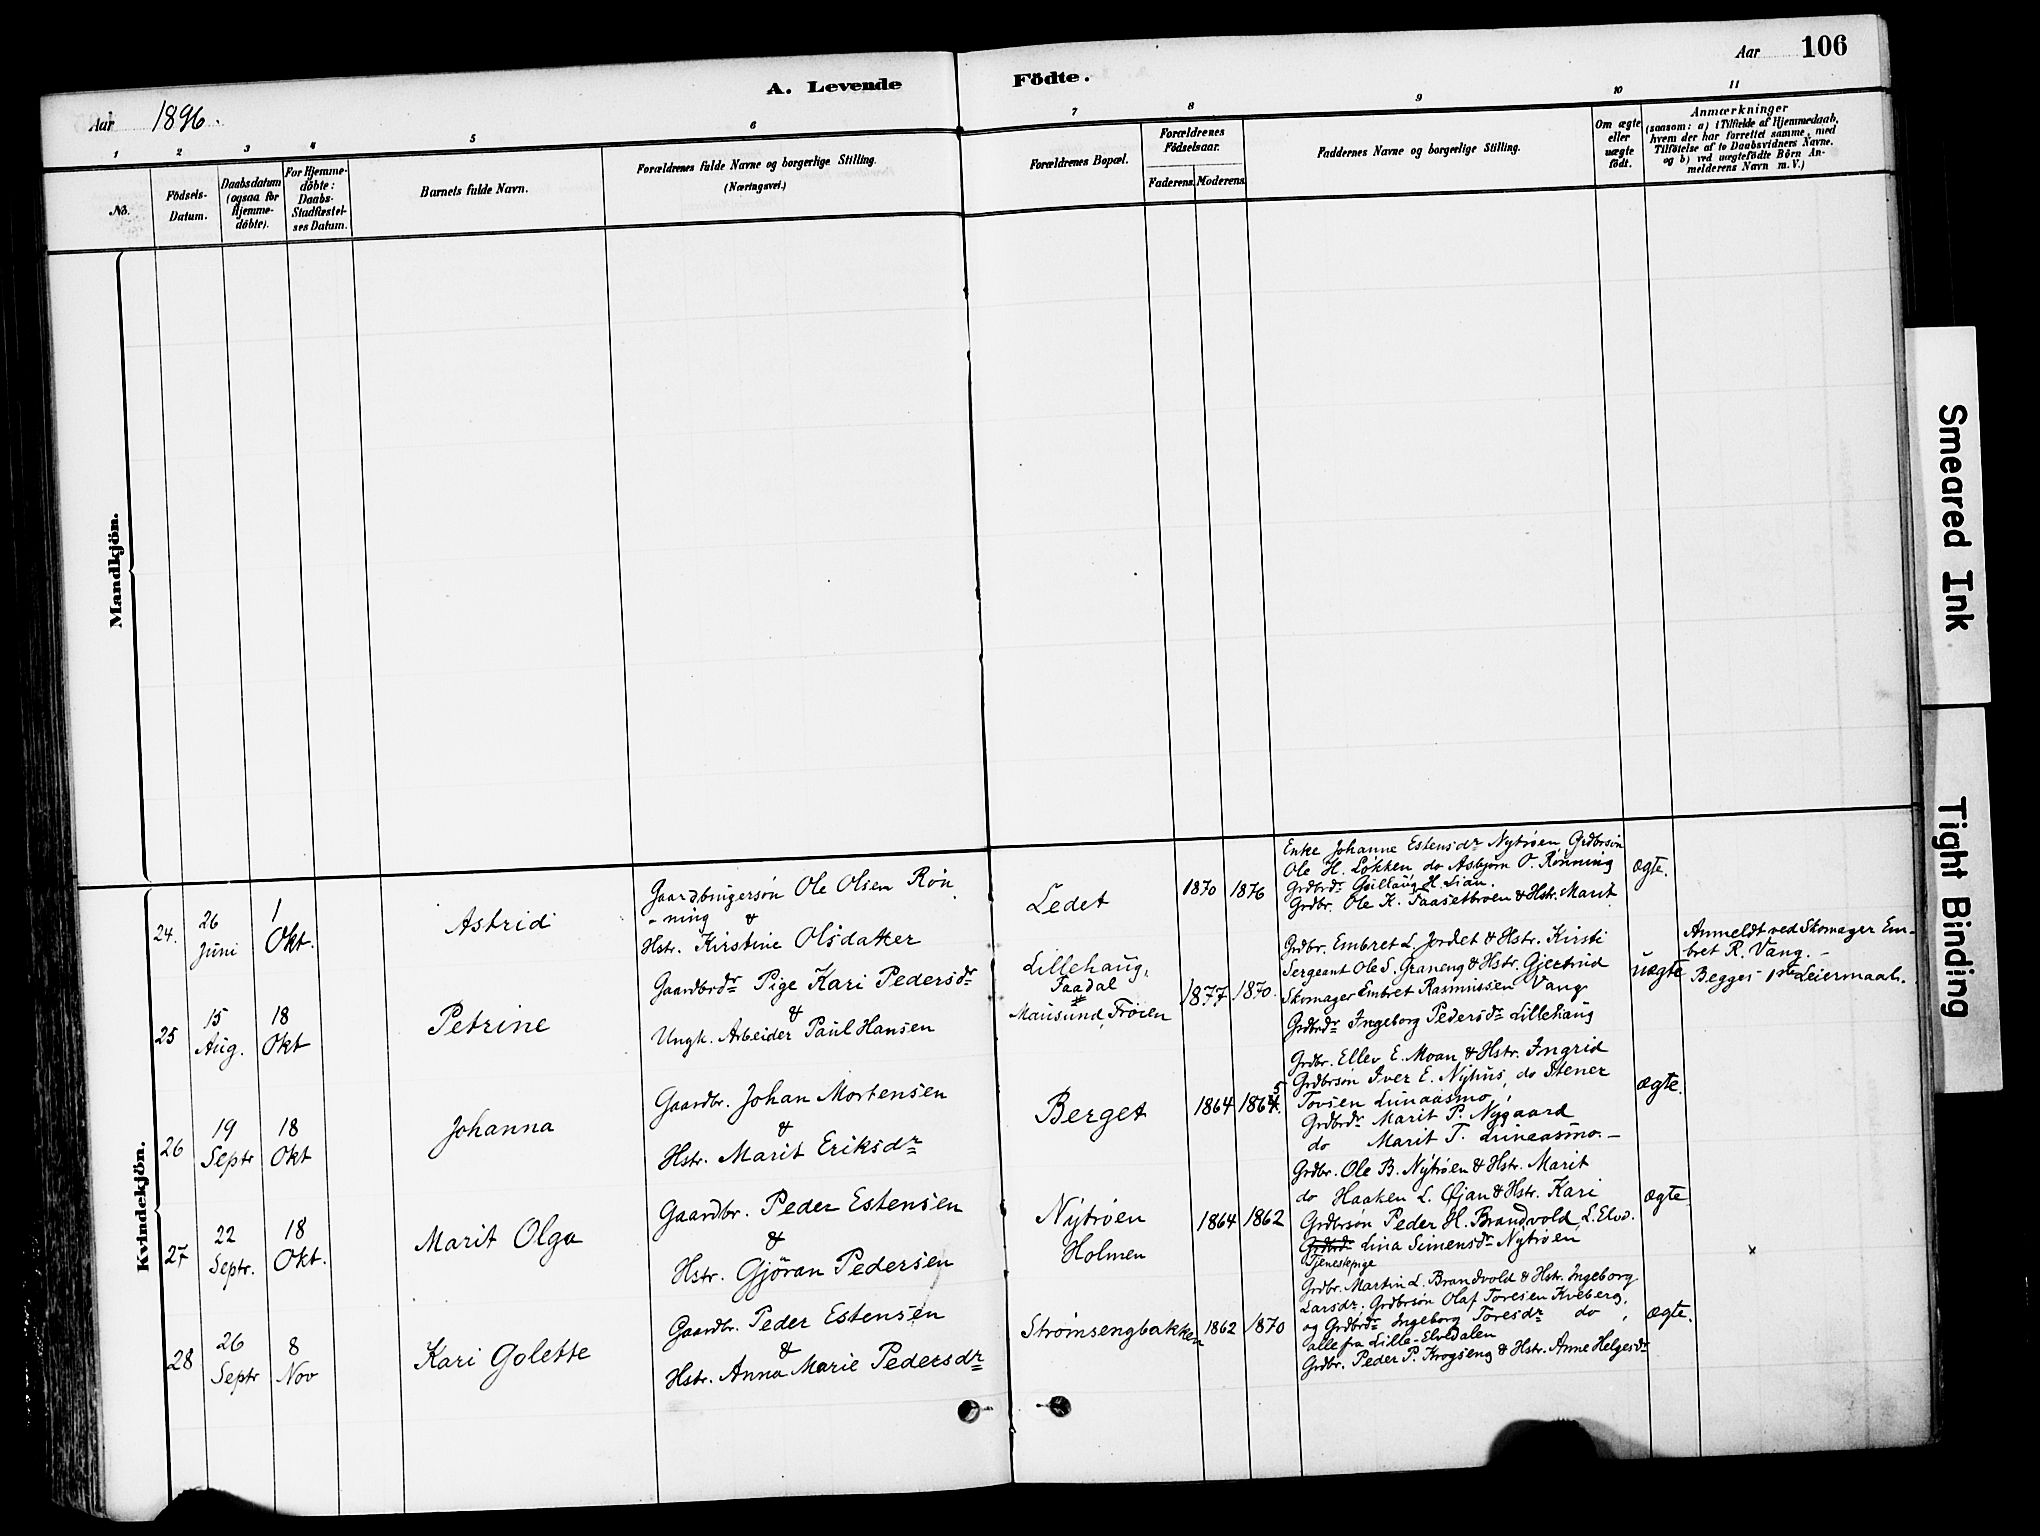 A. Levende Födte.
Aar 1896.
Aar 106
1 2 3 4 5 6 7 8 9 10 11
No.
Födsels-
Datum.
Daabsdatum
(ogsaa for
Hjemme-
döbte).
For Hjemme-
döbte:
Daabs-
Stadfæstel-
ses Datum.
Barnets fulde Navn.
Forældrenes fulde Navne og borgerlige Stilling.
(Næringsvei.)
Forældrenes Bopæl.
Forældrenes
Födselsaar.
Faderens. Moderens.
Faddernes Navne og borgerlige Stilling.
Om ægte
eller
uægte
födt.
Anmærkninger
(saasom: a) i Tilfælde af Hjemmedaab,
hvem der har forrettet samme, med
Tilföielse af to Daabsvidners Navne.
og b) ved uægtefödte Börn An-
melderens Navn m.V.)
Mandkjön.
Kvindekjön.
24.
26
Juni
1
Okt.
Astrid
Gaardbrugersøn Ole Olsen Røn
-ning &
Hstr. Kirstine Olsdatter
Ledet
1870 1876
Enke Johanne Estensdr Nytrøen, Grdbrsøn
Ole H. Løkken do Asbjørn O. Rønning
Grdbrdr Guillaug H. Lian.
Grdbr. Ole K. Faasetbroen & Hstr. Marit
ægte.
25
15
Aug.
18
Okt
Petrine
Gaardbrdr Pige Kari Pedersdr
&
Ungk. Arbeider Paul Hansen
Lillehaug,
Faadal
#
Mausund, Frøien
1877 1870.
Grdbr. Embret L. Jordet & Hstr. Kirsti
Sergeant Ole S. Graneng & Hstr. Gjertrud
Skomager Embret Rasmussen Vang
Grdbrdr Ingeborg Pedersdr Lillehaug
uægte
Anmeldt ved Skomager Em-
bret R. Vang. -
Begges 1ste Leiermaal.
26
19
Septr
18
Okt
Johanna
Gaardbr. Johan Mortensen
&
Hstr. Marit Eriksdr
Berget
1864 1864. 5
Grdbr. Ellev E. Moan & Hstr. Ingrid
Grdbrsøn Iver E. Nyhus, do Stener
Tovsen Lunaasmo,
Grdbrdr Marit P. Nygaard
do Marit T. Luneasmo. -
ægte.
27
22
Septr.
18
Okt.
Marit Olga
Gaardbr. Peder Estensen
&
Hstr. Gjøran Pedersen
Nytrøen
Holmen
1864 1862
Grdbr. Ole B. Nytrøen & Hstr. Marit
do Haaken L. Øjan & Hstr. Kari
Grdbrsøn Peder H. Brandvold, L. Elvd.
Grdbrdr Lina Simensdr Nytrøen
Tjenestepige
ægte
x
28
26
Septr
8
Nov
Kari Golette
Gaardbr. Peder Estensen
&
Hstr. Anna Marie Pedersdr
Strømsengbakken
1862 1870
Grdbr. Martin L. Brandvold & Hstr. Ingeborg
Larsdr. Grdbrsøn Olaf Toresen Kveberg,
og Grdbrdr Ingeborg Toresdr do,
alle fra Lille-Elvedalen
Grdbr. Peder P. Krogseng & Hstr. Anne Helgesdr
ægte.
Smeared Ink
Tight Binding